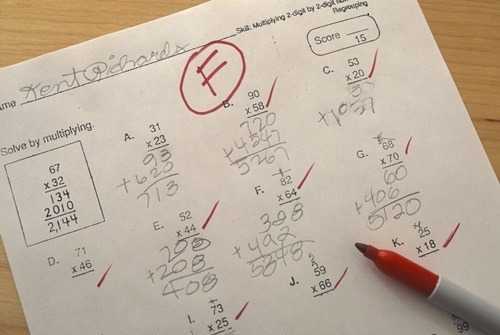 Skill: Multiplying 2-digit by 2-digit
Regrouping
Name Kent Richards
Score
15
F
Solve by multiplying.
67
x 32
134
2010
2,144
A.
31
x 23
93
+ 620
713
B.
90
x 58
720
+ 4547
5267
C.
53
x 20
D.
71
x 46
E.
52
x 44
208
+ 208
408
F.
82
x 64
328
+ 492
5248
G.
68
x 70
60
+ 406
5120
I.
73
x 25
J.
59
x 66
K.
25
x 18
99